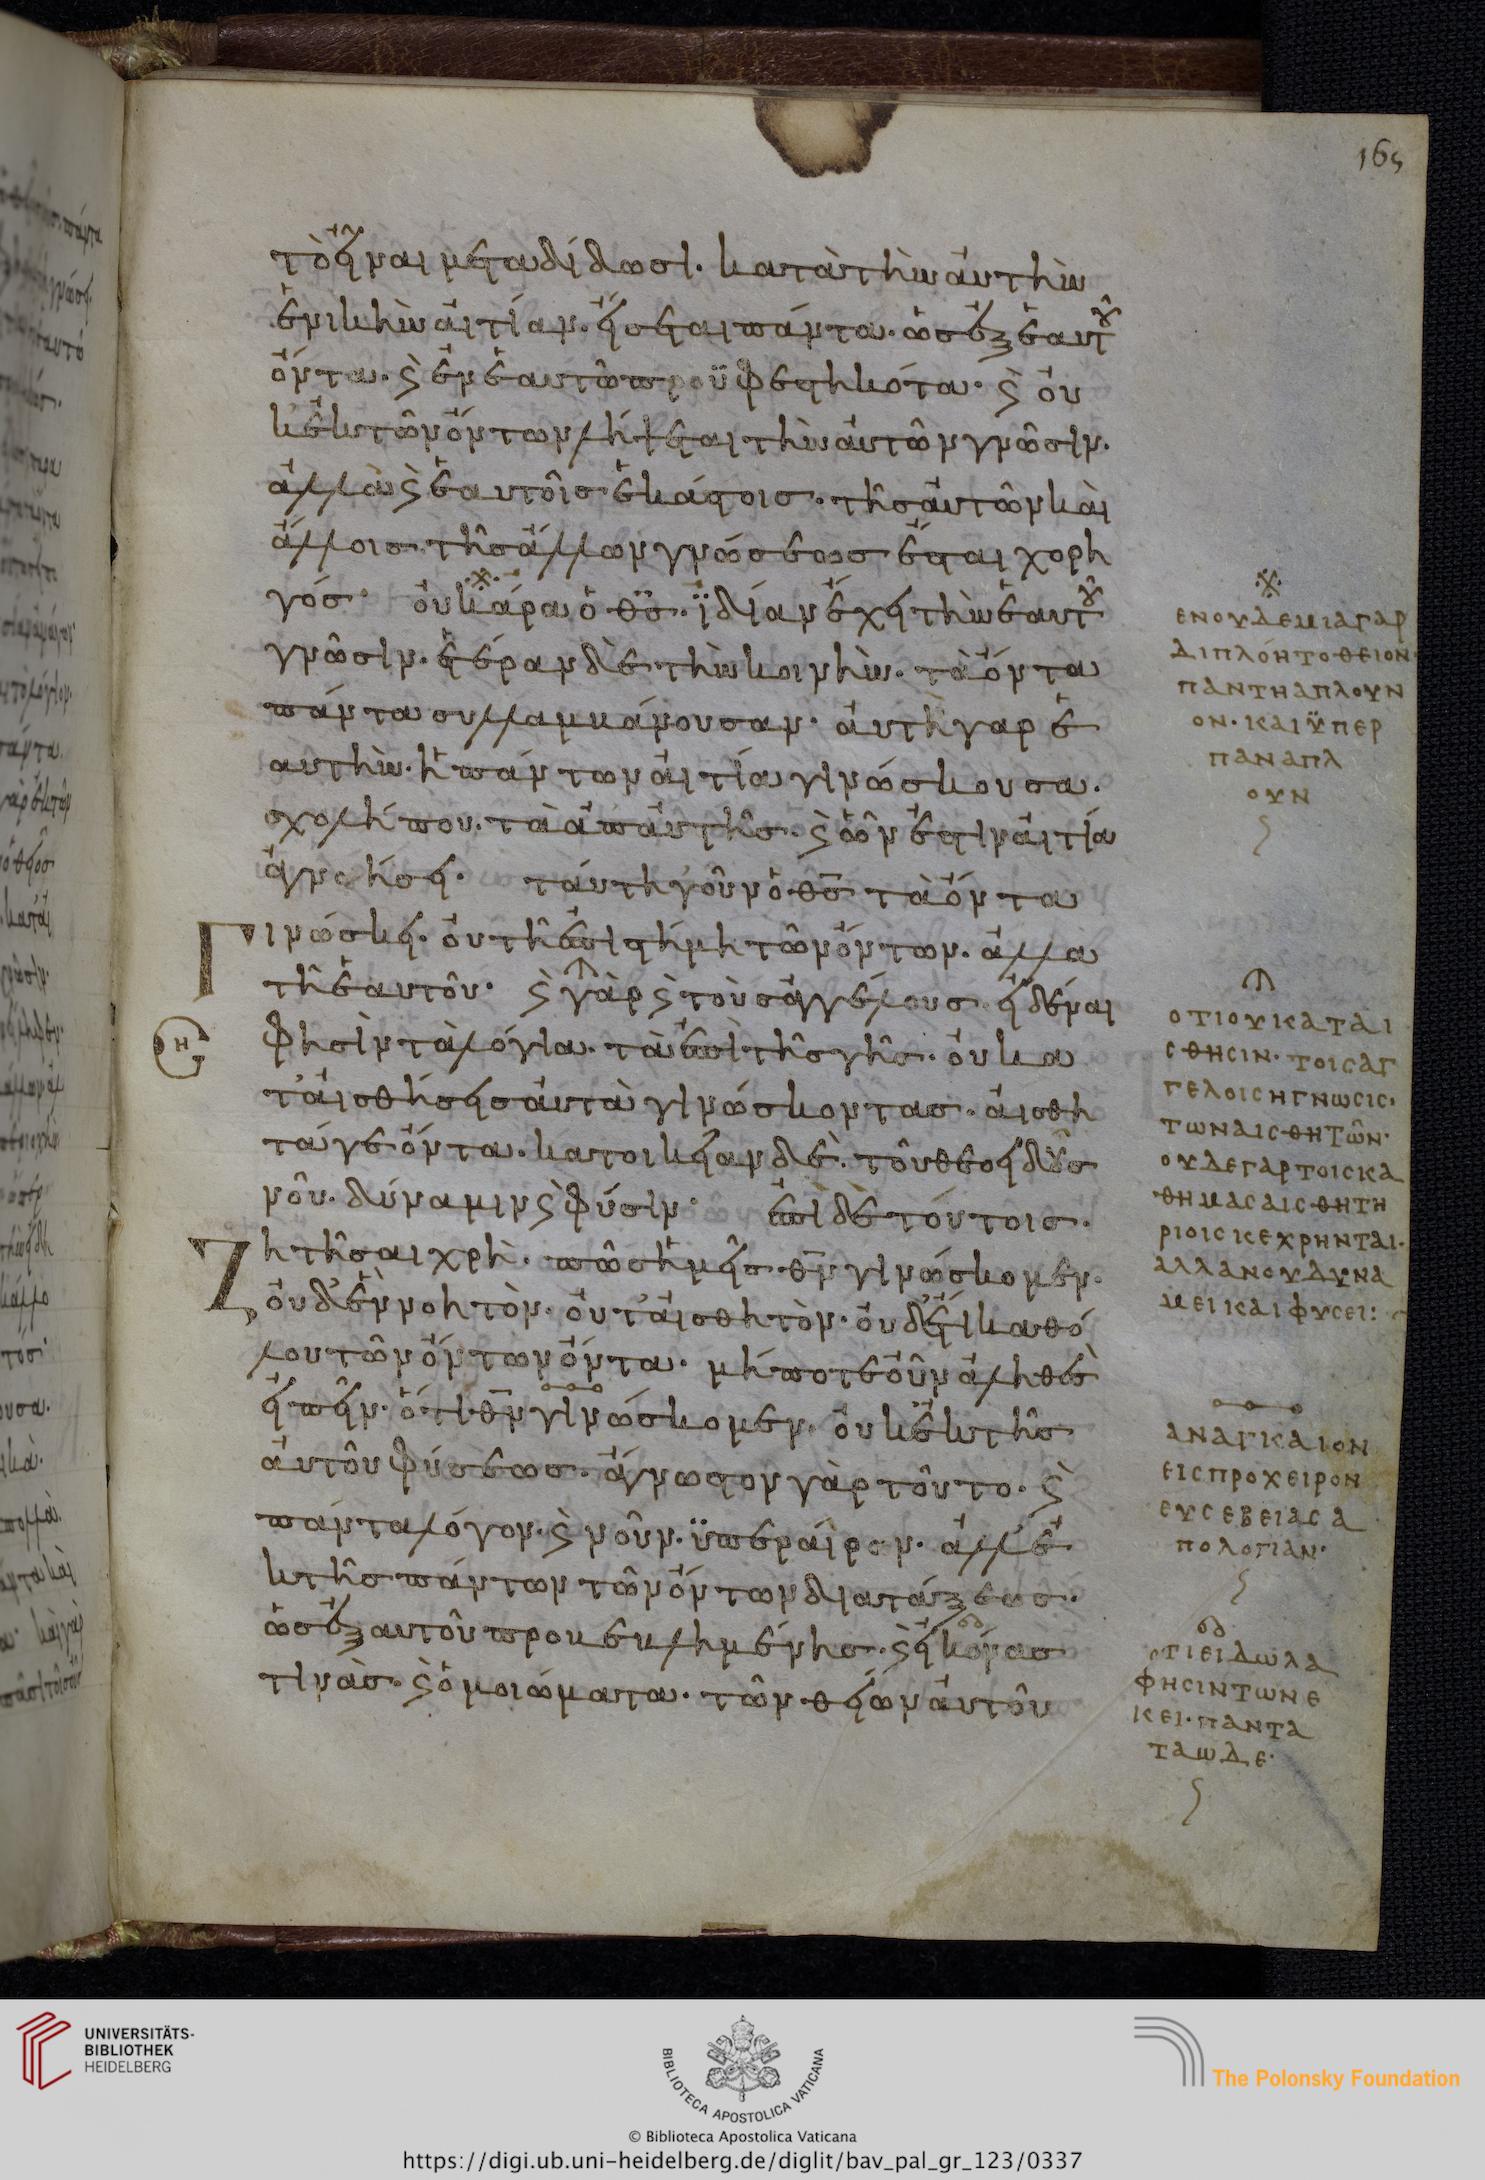 165
τὸ εἶναι μεταδίδωσι. κατὰ τὴν αὐτὴν
ἑνικὴν αἰτίαν. εἴσεται πάντα. ὡς ἐξ ἑαυτοῦ
ὄντα. ϗ ἐν ἑαυτῶ προϋφεστηκότα. ϗ οὐ
κ ἐκ τῶν ὄντων λήψεται τὴν αὐτῶν γνῶσιν.
ἀλλὰ ϗ ἑαυτοῖς ἑκάστοις. τῆς αὐτῶν καὶ
ἄλλοις τῆς ἄλλων γνώσεως ἔσται χορη
γός· οὐκ ἄρα ὁ θς. ἰδίαν ἔχει τὴν ἑαυτοῦ
γνῶσιν. ἑτέραν δὲ τὴν κοινὴν. τὰ ὄντα
πάντα συλλαμβάνουσαν· αὐτὴ γαρ ἑ
αυτὴν. ἡ πάντων αἰτία γινώσκουσα.
σχολή που. τὰ ἀπ' αὐτῆς. ϗ ὧν ἐστὶν αἰτία
ἀγνοήσει. ταύτη γοῦν ὁ θς τὰ ὄντα
Γινώσκει. οὐ τῆ ἐπιστήμη τῶν ὄντων. ἀλλὰ
τῆ ἑαυτοῦ· ϗ γὰρ ϗ τοὺς ἀγγέλους εἰδέναι
φησὶν τὰ λόγια. τὰ ἐπὶ τῆς γῆς. οὐ κα
τ' αἰσθήσεις αὐτὰ γινώσκοντας. αἰσθη
τά γε ὄντα. κατ' οἰκείαν δὲ. τοῦ θεοειδοῦς
νοῦ. δύναμιν ϗ φύσιν· ἐπὶ δὲ τούτοις.
Ζητῆσαι χρὴ. πῶς ἡμεῖς θν γινώσκομεν.
οὐδὲ νοητὸν. οὔτ' αἰσθητὸν. οὐδέ τι καθό
λου τῶν ὄντων ὄντα. μήποτε οὖν ἀληθὲς
εἰπεῖν. ὅτι θν γινώσκομεν. οὐκ ἐκ τῆς
αὐτοῦ φύσεως. ἄγνωστον γὰρ τοῦτο. ϗ
πάντα λόγον. ϗ νοῦν. ὑπεραίρον. ἀλλ' ἐ
κ τῆς πάντων τῶν ὄντων διατάξεως.
ὡς ἐξ αυτοῦ προβεβλημένης. ϗ εἰκόνας
τινὰς. ϗ ὁμοιώματα. τῶν θείων αὐτοῦ
ΕΝ ΟΥΔΕΜΙΑ ΓΑΡ
ΔΙΠΛΟΗ ΤΟ ΘΕΙΟΝ
ΠΑΝΤΗ ΑΠΛΟΥΝ
ΟΝ. ΚΑΙ ΫΠΕΡ
ΠΑΝ ΑΠΛ
ΟΥΝ
ΟΤΙ ΟΥ ΚΑΤ ΑΙ
ΣΘΗΣΙΝ. ΤΟΙΣ ΑΓ
ΓΕΛΟΙΣ Η ΓΝΩΣΙΣ.
ΤΩΝ ΑΙΣΘΗΤΩΝ.
ΟΥΔΕ ΓΑΡ ΤΟΙΣ ΚΑ
Θ ΗΜΑΣ ΑΙΣΘΗΤΗ
ΡΙΟΙΣ ΚΕΧΡΗΝΤΑΙ.
ΑΛΛΑ ΝΟΥ ΔΥΝΑ
ΜΕΙ ΚΑΙ ΦΥΣΕΙ:
ΑΝΑΓΚΑΙΟΝ
ΕΙΣ ΠΡΟΧΕΙΡΟΝ
ΕΥΣΕΒΕΙΑΣ Α
ΠΟΛΟΓΙΑΝ.
ΟΤΙ ΕΙΔΩΛΑ
ΦΗΣΙΝ ΤΩΝ Ε
ΚΕΙ. ΠΑΝΤΑ
ΤΑ ΩΔΕ.
UNIVERSITÄTS-
BIBLIOTHEK
HEIDELBERG
BIBLIOTECA APOSTOLICA VATICANA
The Polonsky Foundation
© Biblioteca Apostolica Vaticana
https://digi.ub.uni-heidelberg.de/diglit/bav_pal_gr_123/0337